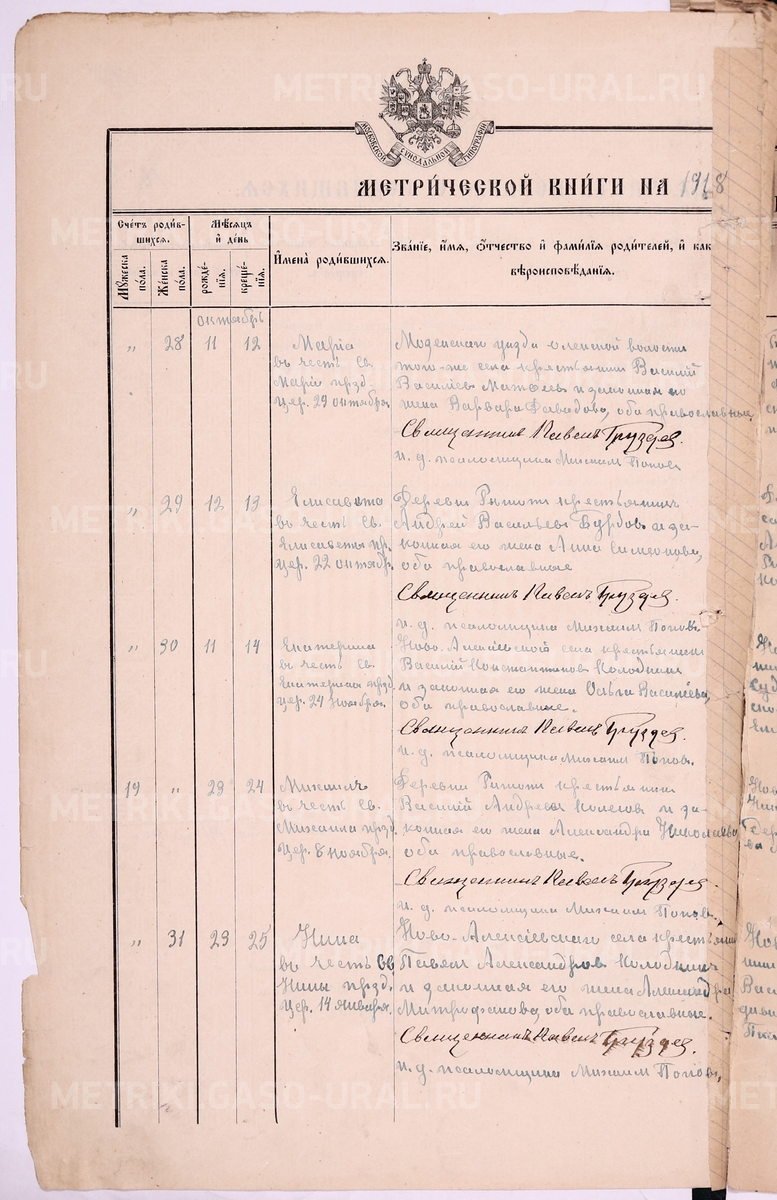 МОСКОВСКОЙ СѴНОДАЛЬНОЙ ТИПОГРАФІИ
МЕТРИ́ЧЕСКОЙ КНИ́ГИ НА 1918
Сче́тъ роди́в-
шихся.
Му́жеска по́ла.
Же́нска по́ла.
Мѣ́сяцъ
и҆ де́нь
рожде́-
нїѧ.
креще́-
нїѧ.
И҆мена̀ роди́вшихся.
Зва́нїе, и҆́мѧ, ѻ҆́тчество и҆ фами́лїѧ роди́телей, и҆ как
вѣроисповѣ́данїѧ.
октябрь
„ 28 11 12
Марія
въ честь Св.
Маріи празд.
цер. 29 октября
уѣзда волости
того-же села крестьянинъ Василій
Василіевъ Матвѣевъ и законная его
жена Варвара Давидова, оба православные
Священникъ Павелъ Груздев.
и. д. псаломщика Михаилъ Поповъ
„ 29 12 13
Елисавета
въ честь Св.
Елисаветы пр.
цер. 22 октябр.
Деревни крестьянинъ
Андрей Васильевъ Бурбовъ и за-
конная его жена Анна Симеонова,
оба православные
Священникъ Павелъ Груздев.
и. д. псаломщика Михаилъ Поповъ
„ 30 11 14
Екатерина
въ честь Св.
Екатерины празд.
цер. 24 Ноября.
Ново-Алексіевскаго села крестьянинъ
Василій Константиновъ Колодкинъ
и законная его жена Ольга Василіева,
оба православные.
Священникъ Павелъ Груздев.
и. д. псаломщика Михаилъ Поповъ.
19 „ 23 24
Михаилъ
въ честь Св.
Михаила празд.
цер. 8 ноября.
Деревни крестьянинъ
Василій Андреевъ Колеговъ и за-
конная его жена Александра Николаева
оба православные.
Священникъ Павелъ Груздев.
и. д. псаломщика Михаилъ Поповъ.
„ 31 23 25
Нина
въ честь Св.
Нины празд.
цер. 14 января.
Ново-Алексіевскаго села крестьянинъ
Павелъ Александровъ Колодкинъ
и законная его жена Александра
Митрофанова, оба православные.
Священникъ Павелъ Груздев.
и. д. псаломщика Михаилъ Поповъ,
METRIKI.GASO-URAL.RU